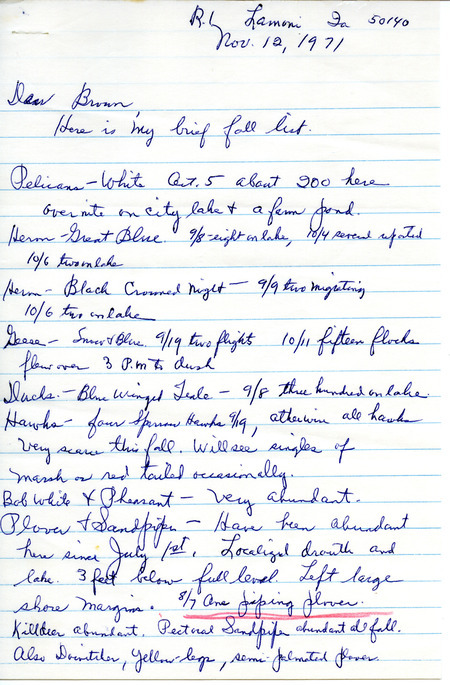 R.1, Lamoni Ia 50140
Nov. 12, 1971
Dear Brown,
Here is my brief fall list.
Pelicans - White Oct. 5 about 200 here
over nite on city lake & a farm pond.
Heron - Great Blue. 9/8 - eight on lake, 10/4 several reported
10/6 two on lake
Heron - Black Crowned Night - 9/9 two migrating
10/6 two on lake
Geese - Snow & Blue. 9/19 two flights 10/11 fifteen flocks
flew over 3 P.m to dusk
Ducks. - Blue Winged Teale - 9/8 three hundred on lake.
Hawks - four Sparrow Hawks 9/9, otherwise all hawks
very scarce this fall. Will see singles of
marsh or red tailed occasionally.
Bob White & Pheasant - Very abundant.
Plover & Sandpiper - Have been abundant
here since July 1st. Localized drouth and
lake. 3 feet below full level. Left large
shore margins. 8/7 One piping plover.
Killdeer abundant. Pectoral Sandpiper abundant all fall.
Also Dowitcher, Yellow-legs, semi-palmated plover.